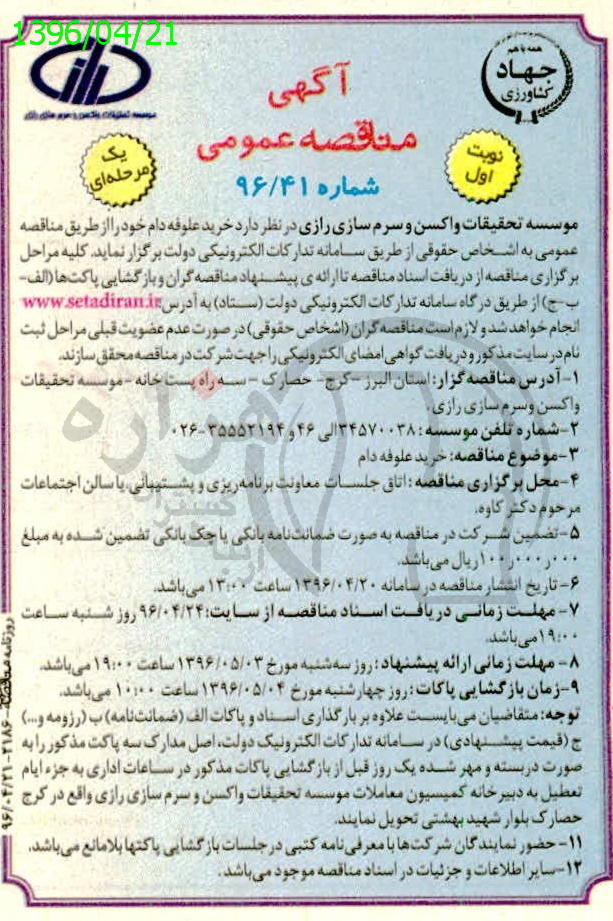 1396/04/21
همه با هم
جهاد
کشاورزی
موسسه تحقیقات واکسن و سرم سازی رازی
آگهی
مناقصه عمومی
شماره ۹۶/۴۱
نوبت
اول
یک
مرحله‌ای
موسسه تحقیقات واکسن و سرم سازی رازی در نظر دارد خرید علوفه دام خود را از طریق مناقصه
عمومی به اشخاص حقوقی از طریق سامانه تدارکات الکترونیکی دولت برگزار نماید. کلیه مراحل
برگزاری مناقصه از دریافت اسناد مناقصه تا ارائه ی پیشنهاد مناقصه گران و بازگشایی پاکت‌ها (الف-
ب-ج) از طریق درگاه سامانه تدارکات الکترونیکی دولت (ستاد) به آدرس www.setadiran.ir
انجام خواهد شد و لازم است مناقصه گران (اشخاص حقوقی) در صورت عدم عضویت قبلی مراحل ثبت
نام در سایت مذکور و دریافت گواهی امضای الکترونیکی را جهت شرکت در مناقصه محقق سازند.
۱-آدرس مناقصه گزار: استان البرز -کرج- حصارک - سه راه پست خانه - موسسه تحقیقات
واکسن و سرم سازی رازی.
۲-شماره تلفن موسسه: ۳۴۵۷۰۰۳۸ الی ۴۶ و ۳۵۵۵۲۱۹۴-۰۲۶
۳-موضوع مناقصه: خرید علوفه دام
۴-محل برگزاری مناقصه: اتاق جلسات معاونت برنامه‌ریزی و پشتیبانی، یا سالن اجتماعات
مرحوم دکتر کاوه.
۵-تضمین شرکت در مناقصه به صورت ضمانت‌نامه بانکی یا چک بانکی تضمین شده به مبلغ
۱۰۰ر۰۰۰ر۰۰۰ ریال می‌باشد.
۶- تاریخ انتشار مناقصه در سامانه ۱۳۹۶/۰۴/۲۰ ساعت ۱۳:۰۰ می‌باشد.
۷- مهلت زمانی دریافت اسناد مناقصه از سایت: ۹۶/۰۴/۲۴ روز شنبه ساعت
۱۹:۰۰ می‌باشد.
۸- مهلت زمانی ارائه پیشنهاد: روز سه‌شنبه مورخ ۱۳۹۶/۰۵/۰۳ ساعت ۱۹:۰۰ می‌باشد.
۹-زمان بازگشایی پاکات: روز چهارشنبه مورخ ۱۳۹۶/۰۵/۰۴ ساعت ۱۰:۰۰ می‌باشد.
توجه: متقاضیان می‌بایست علاوه بر بارگذاری اسناد و پاکات الف (ضمانت‌نامه) ب (رزومه و...)
ج (قیمت پیشنهادی) در سامانه تدارکات الکترونیک دولت، اصل مدارک سه پاکت مذکور را به
صورت دربسته و مهر شده یک روز قبل از بازگشایی پاکات مذکور در ساعات اداری به جزء ایام
تعطیل به دبیرخانه کمیسیون معاملات موسسه تحقیقات واکسن و سرم سازی رازی واقع در کرج
حصارک بلوار شهید بهشتی تحویل نمایند.
۱۱-حضور نمایندگان شرکت‌ها با معرفی‌نامه کتبی در جلسات بازگشایی پاکتها بلامانع می‌باشد.
۱۲-سایر اطلاعات و جزئیات در اسناد مناقصه موجود می‌باشد.
روزنامه مناقصه ۲۱۸۶-۹۶/۰۴/۲۱
هزاره